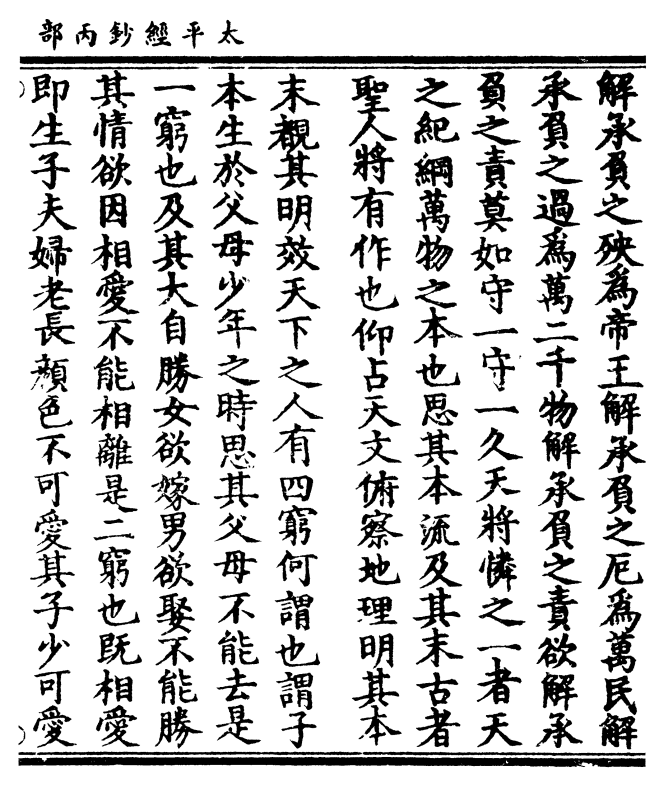 太平經鈔丙部
解承負之殃為帝王解承負之厄為萬民解
承負之過為萬二千物解承負之責欲解承
負之責莫如守一守一久天將憐之一者天
之紀綱萬物之本也思其本流及其末古者
聖人將有作也仰占天文俯察地理明其本
末覩其明效天下之人有四窮何謂也謂子
本生於父母少年之時思其父母不能去是
一窮也及其大自勝女欲嫁男欲娶不能勝
其情欲因相愛不能相離是二窮也既相愛
即生子夫婦老長顏色不可愛其子少可愛